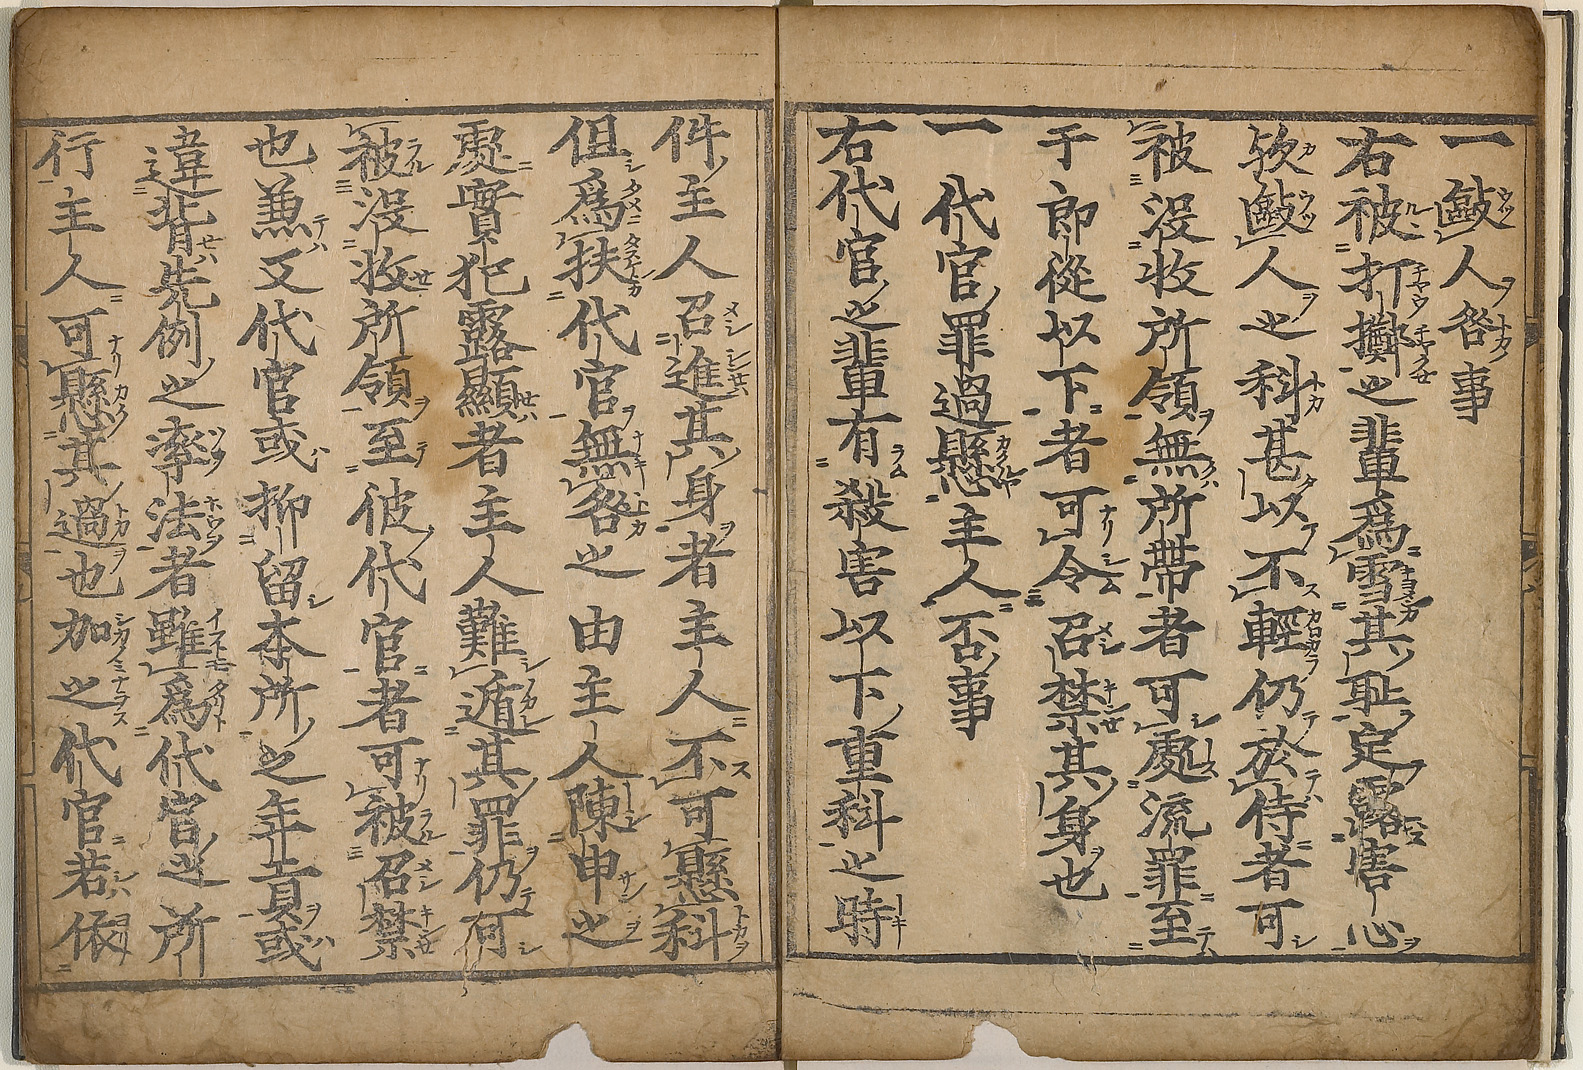 一 敺人咎事
右被打擲之輩爲雪其耻定露害心
歟敺人之科甚以不輕仍於侍者可
被没收所領無所帶者可處流罪至
于郎從以下者可令召禁其身也
一 代官罪過懸主人否事
右代官之輩有殺害以下重科之時
件主人召進其身者主人不可懸科
但爲扶代官無咎之由主人陳申之
處實犯露顯者主人難遁其罪仍可
被没收所領至彼代官者可被召禁
也兼又代官或抑留本所之年貢或
違背先例之率法者雖爲代官之所
行主人可懸其過也加之代官若依